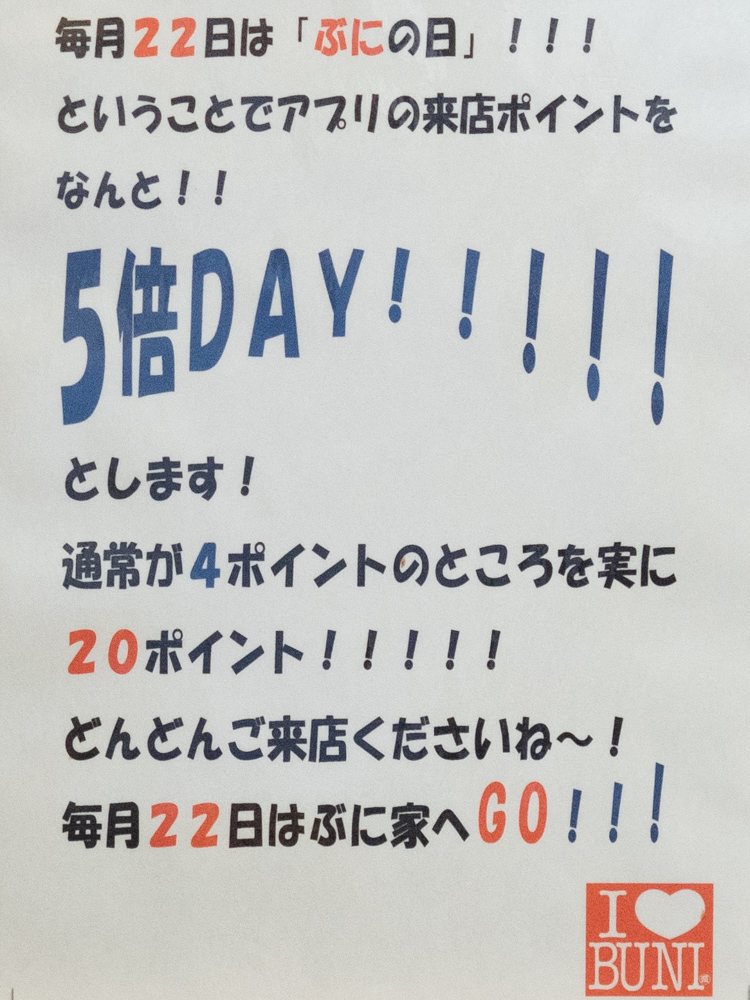 毎月２２日は「ぶにの日」！！！
ということでアプリの来店ポイントを
なんと！！
5倍DAY！！！！！
とします！
通常が４ポイントのところを実に
２０ポイント！！！！！
どんどんご来店くださいね～！
毎月２２日はぶに家へGO！！！
I
BUNI